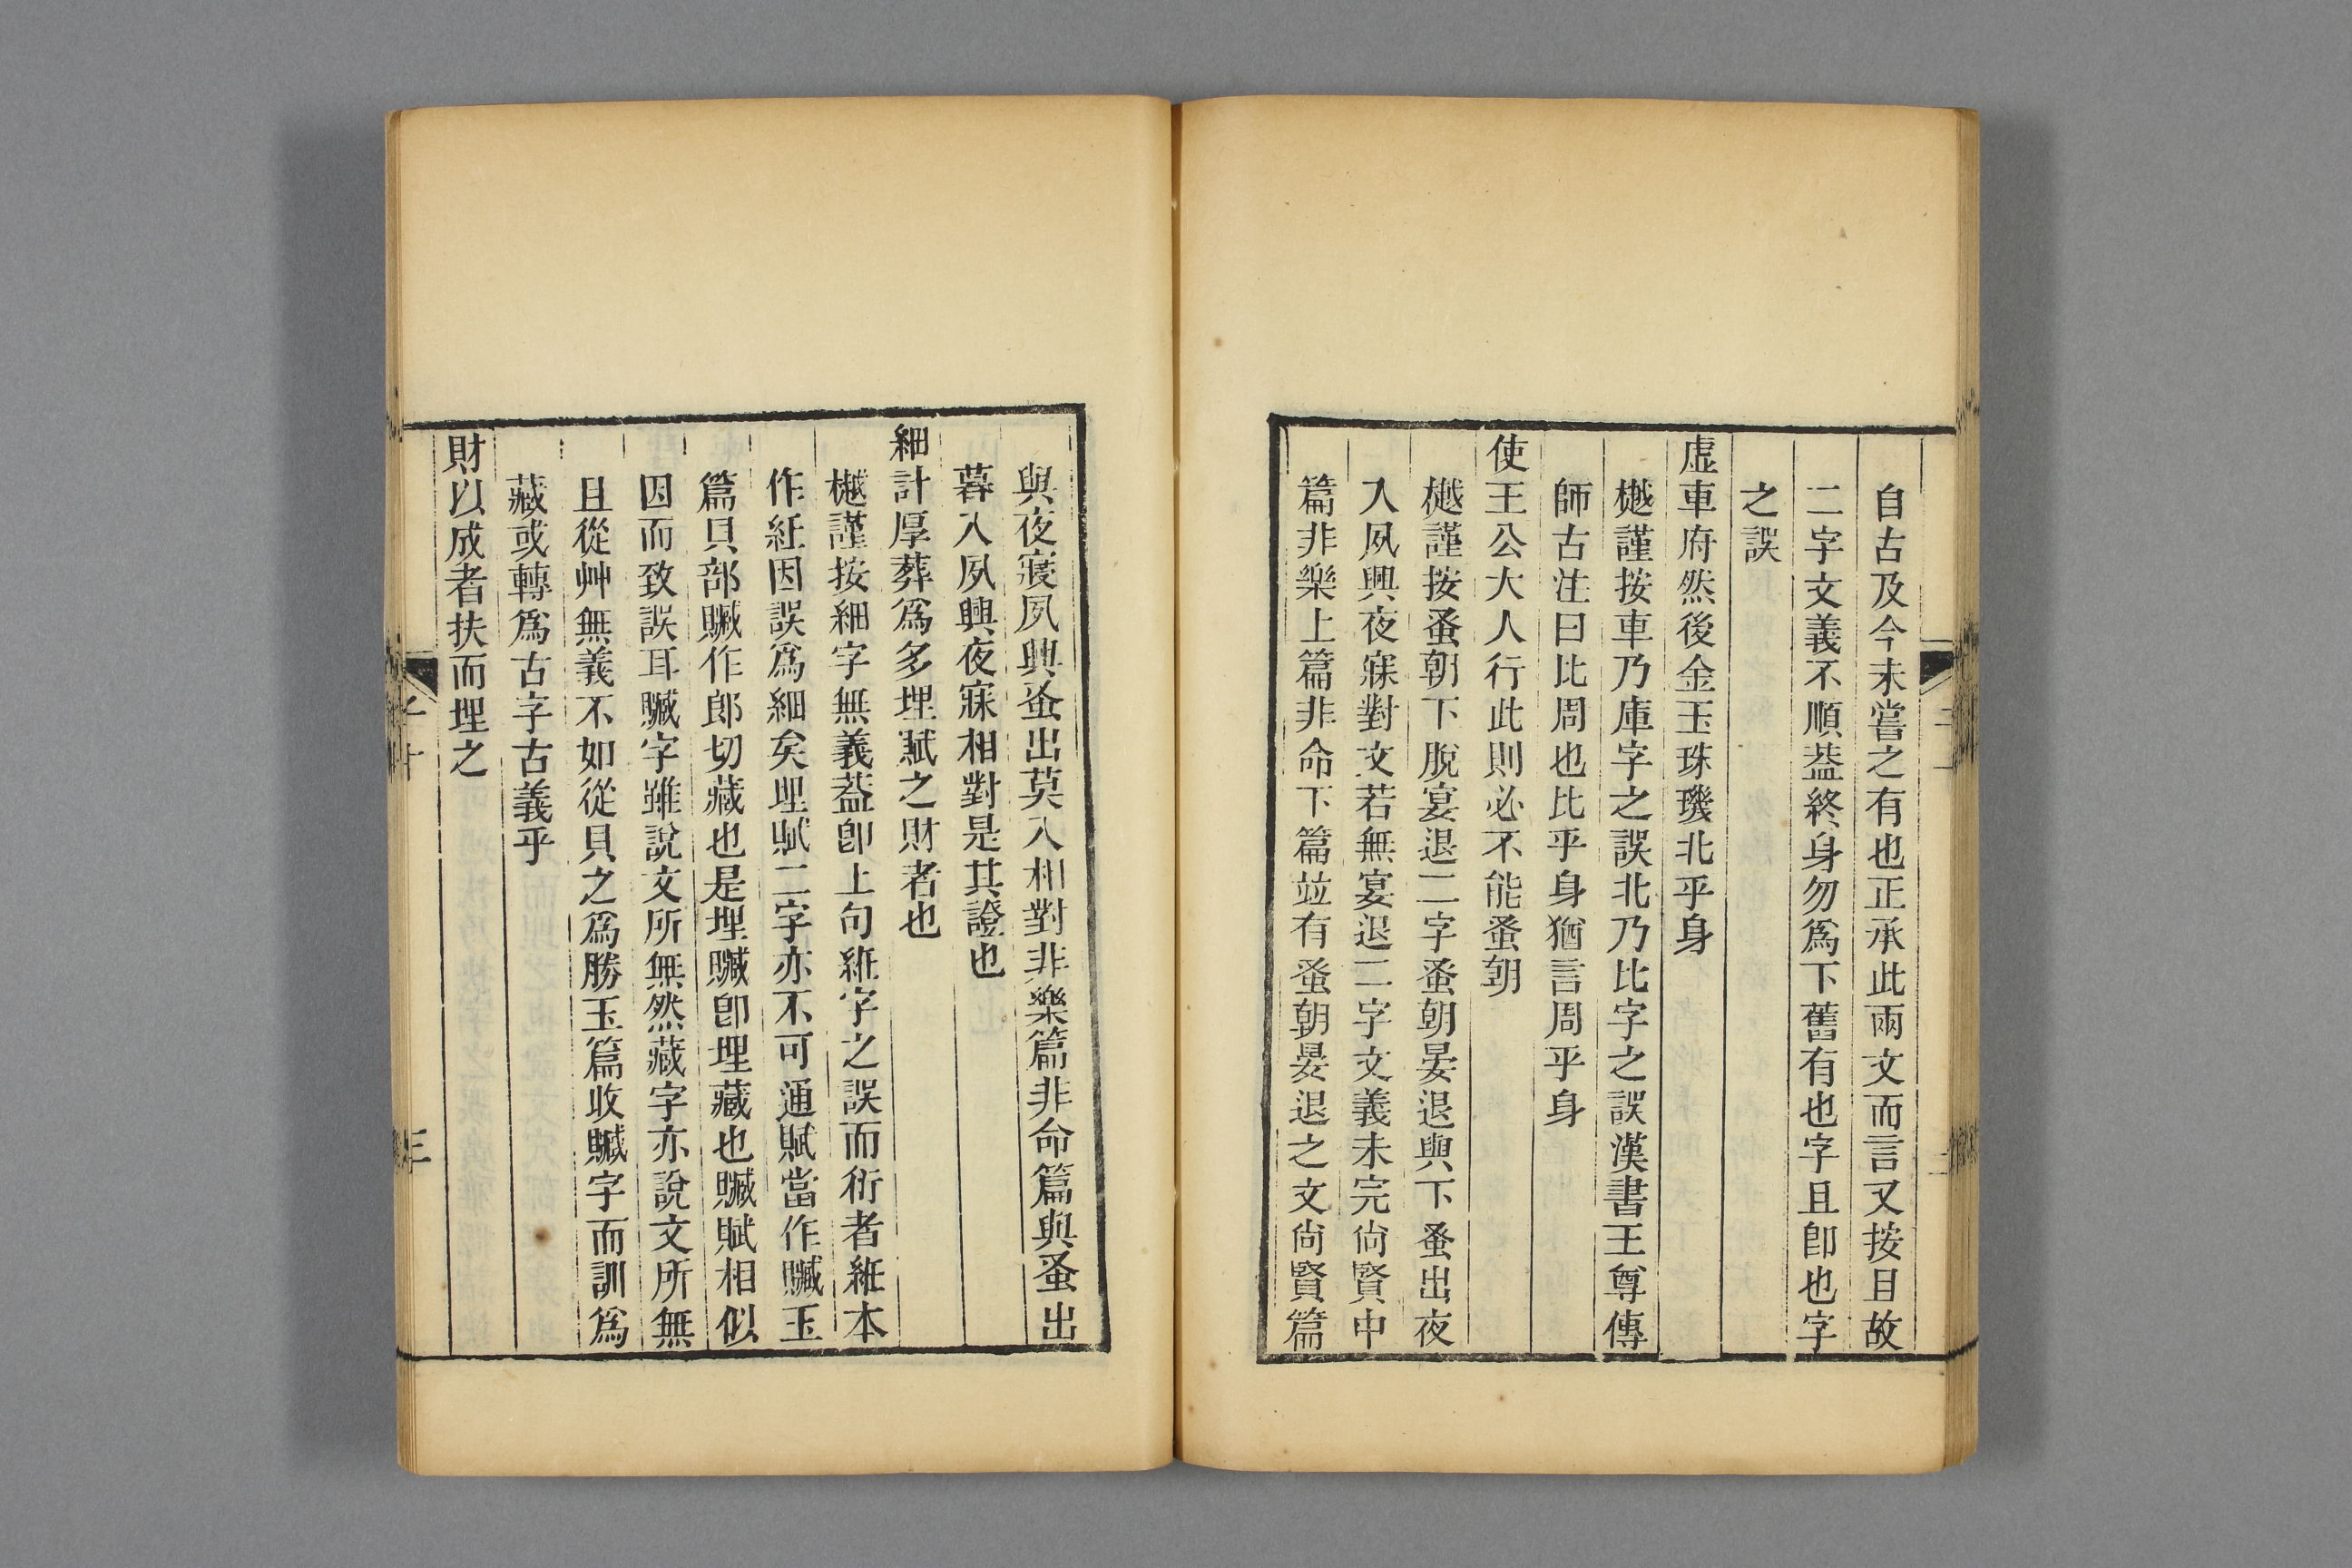 自古及今未嘗之有也正承此兩文而言又按且故
二字文義不順葢終身勿爲下舊有也字且卽也字
之誤
虛車府然後金玉珠璣北乎身
樾謹按車乃庫字之誤北乃比字之誤漢書王尊傳
師古注曰比周也比乎身猶言周乎身
使王公大人行此則必不能蚤朝
樾謹按蚤朝下脫宴退二字蚤朝晏退與下蚤出夜
入夙興夜寐對文若無宴退二字文義未完尙賢中
篇非樂上篇非命下篇竝有蚤朝晏退之文尙賢篇
與夜寢夙興蚤出莫入相對非樂篇非命篇與蚤出
暮入夙興夜寐相對是其證也
細計厚葬爲多埋賦之財者也
樾謹按細字無義葢卽上句紝字之誤而衍者紝本
作紅因誤爲細矣埋賦二字亦不可通賦當作贜玉
篇貝部贜作郞切藏也是埋贜卽埋藏也贜賦相似
因而致誤耳贜字雖說文所無然藏字亦說文所無
且從艸無義不如從貝之爲勝玉篇收贜字而訓爲
藏或轉爲古字古義乎
財以成者扶而埋之